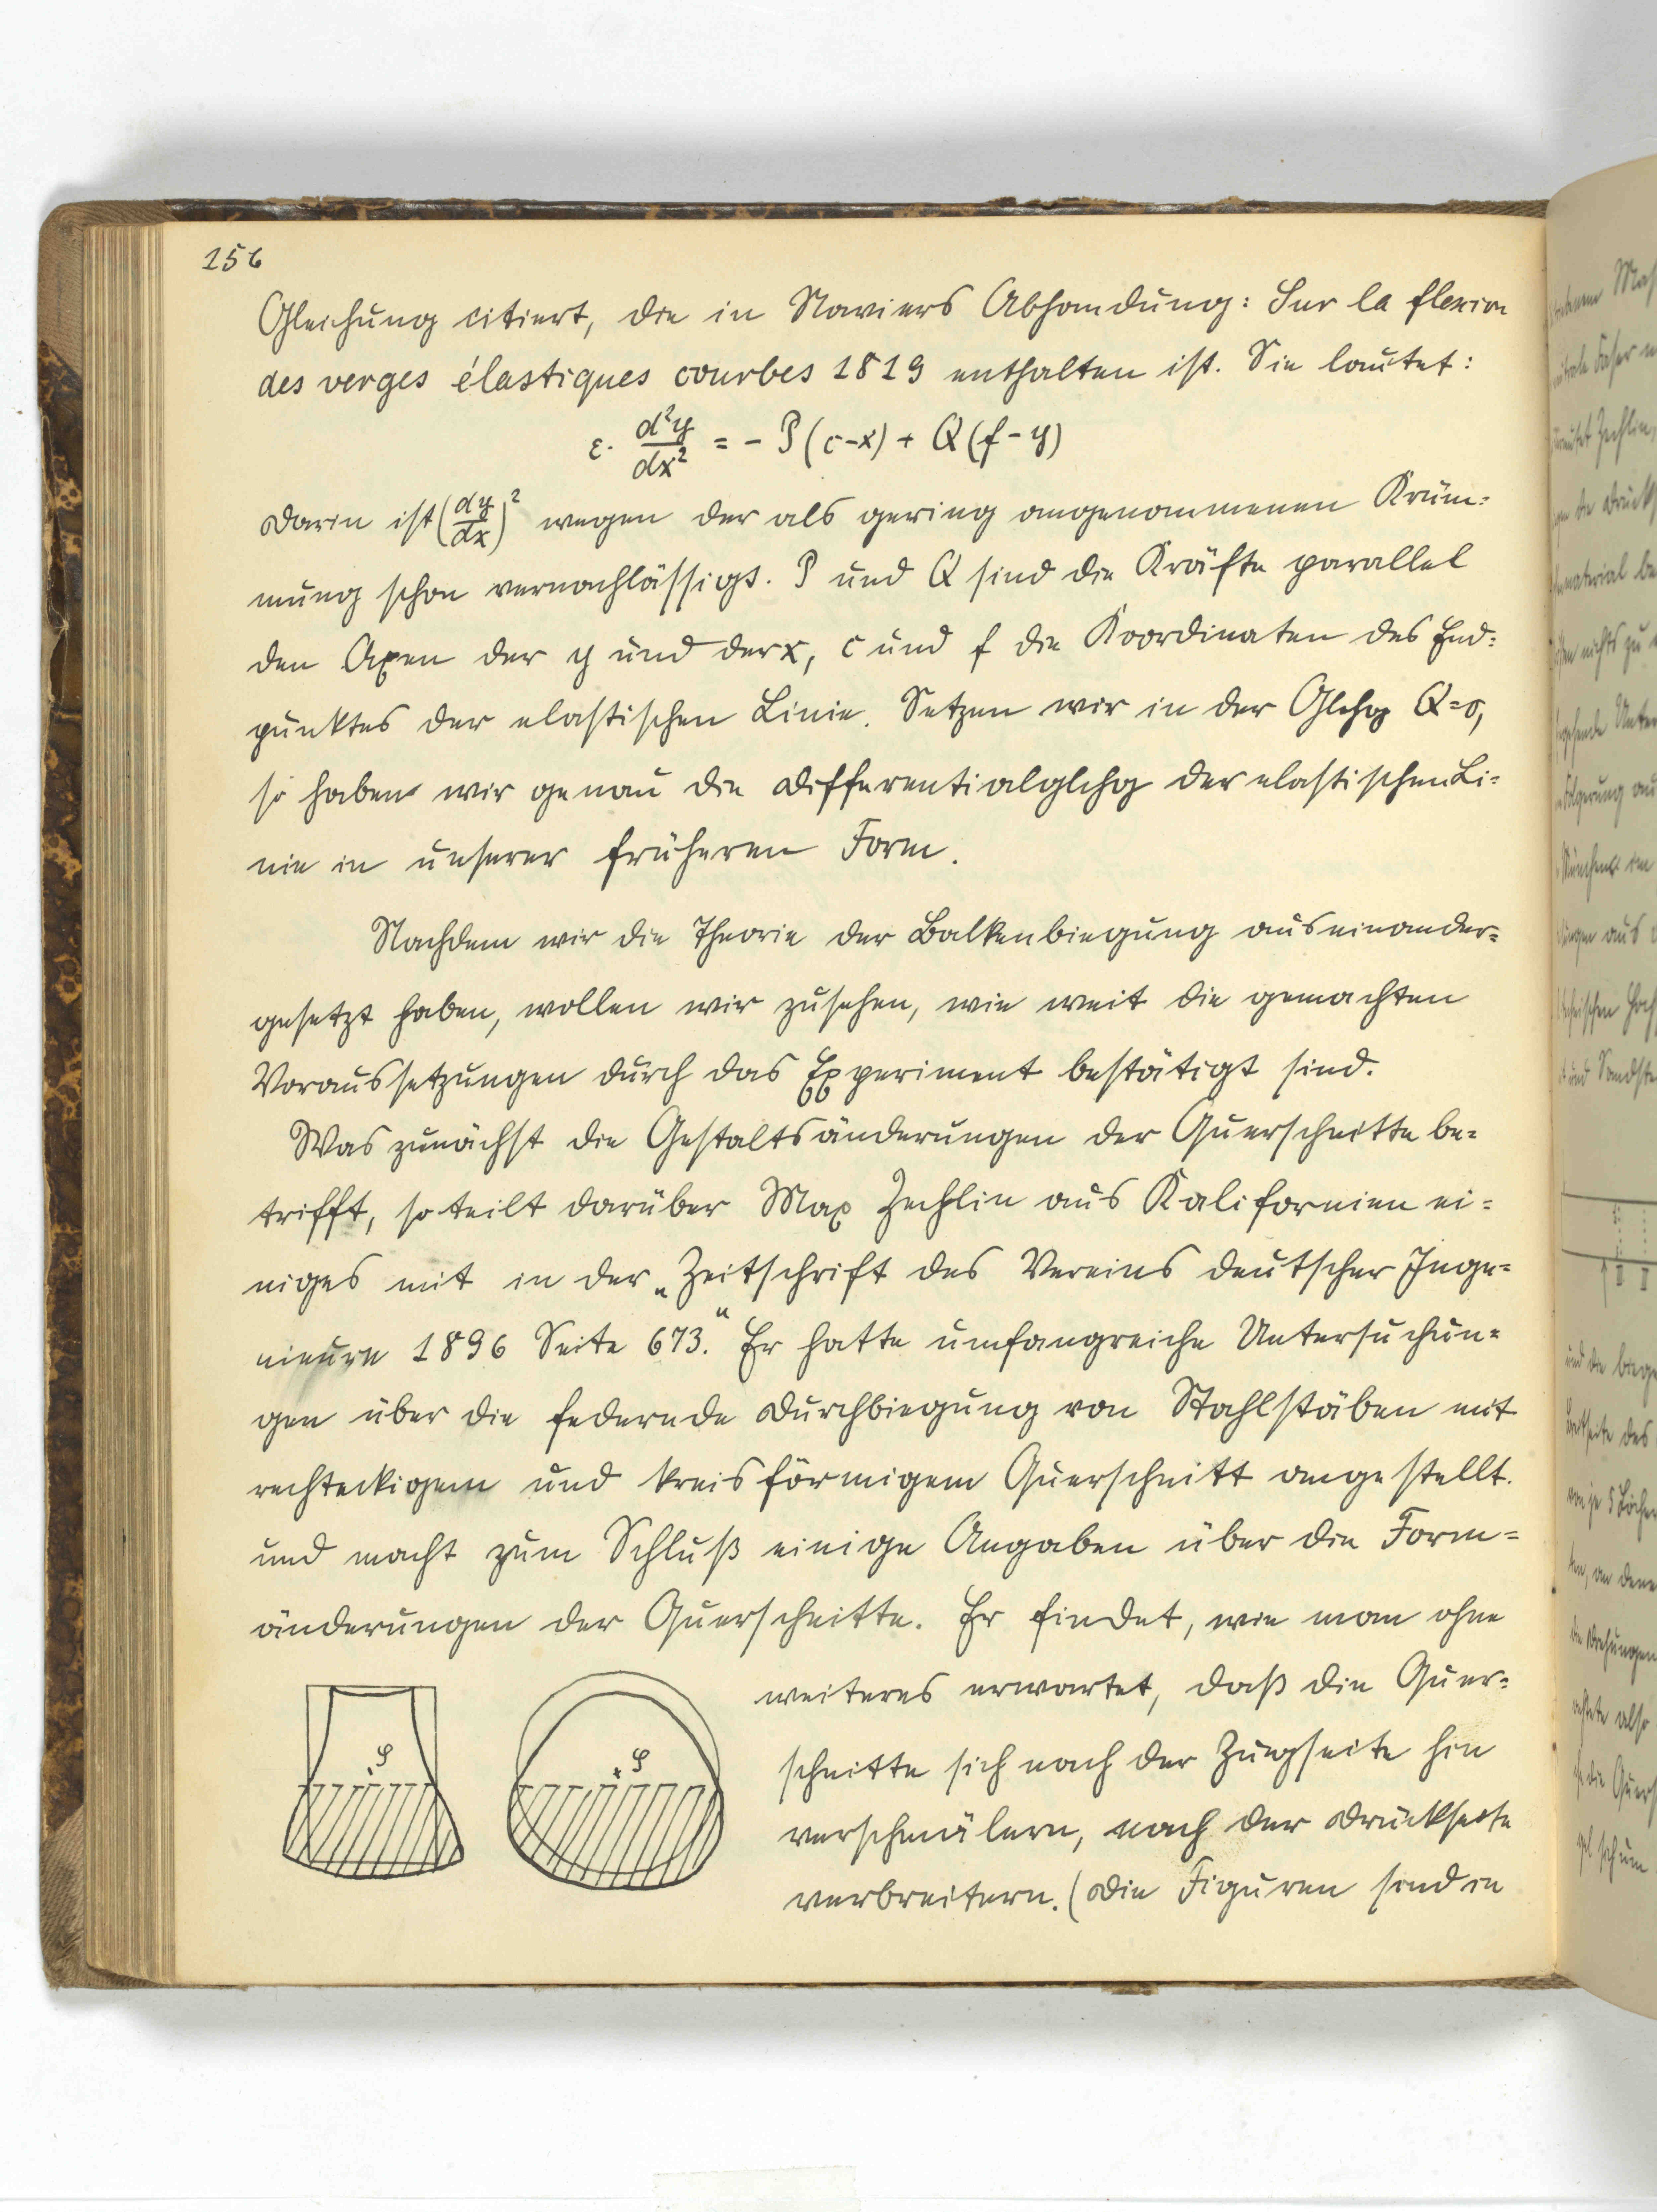 156
Gleichung citiert, die in Naviers Abhandung: Sur la flexion
des verges élastiques courbes 1819 enthalten ist. Sie lautet:
ε · d²y/dx² = - P(c-x) + Q(f-y)
Darin ist (dy/dx)² wegen der als gering angenommenen Krüm=
mung schon vernachlässigt. P und Q sind die Kräfte parallel
den Axen der y und der x, c und f die Koordinaten des End=
punktes der elastischen Linie. Setzen wir in der Glchg Q=0,
so haben wir genau die Differentialglchg der elastischen Li=
nie in unserer früheren Form.
Nachdem wir die Theorie der Balkenbiegung auseinander=
gesetzt haben, wollen wir zusehen, wie weit die gemachten
Voraussetzungen durch das Experiment bestätigt sind.
Was zunächst die Gestaltsänderungen der Querschnitte be=
trifft, so teilt darüber Max Zechlin aus Kalifornien ei=
niges mit in der „Zeitschrift des Vereins deutscher Inge=
nieure 1896 Seite 673.“ Er hatte umfangreiche Untersuchun=
gen über die federnde Durchbiegung von Stahlstäben mit
rechteckigem und kreisförmigem Querschnitt angestellt.
und macht zum Schluß einige Angaben über die Form=
änderungen der Querschnitte. Er findet, wie man ohne
weiteres erwartet, daß die Quer=
schnitte sich nach der Zugseite hin
verschmälern, nach der Druckseite
verbreitern. (Die Figuren sind in
φ
φ